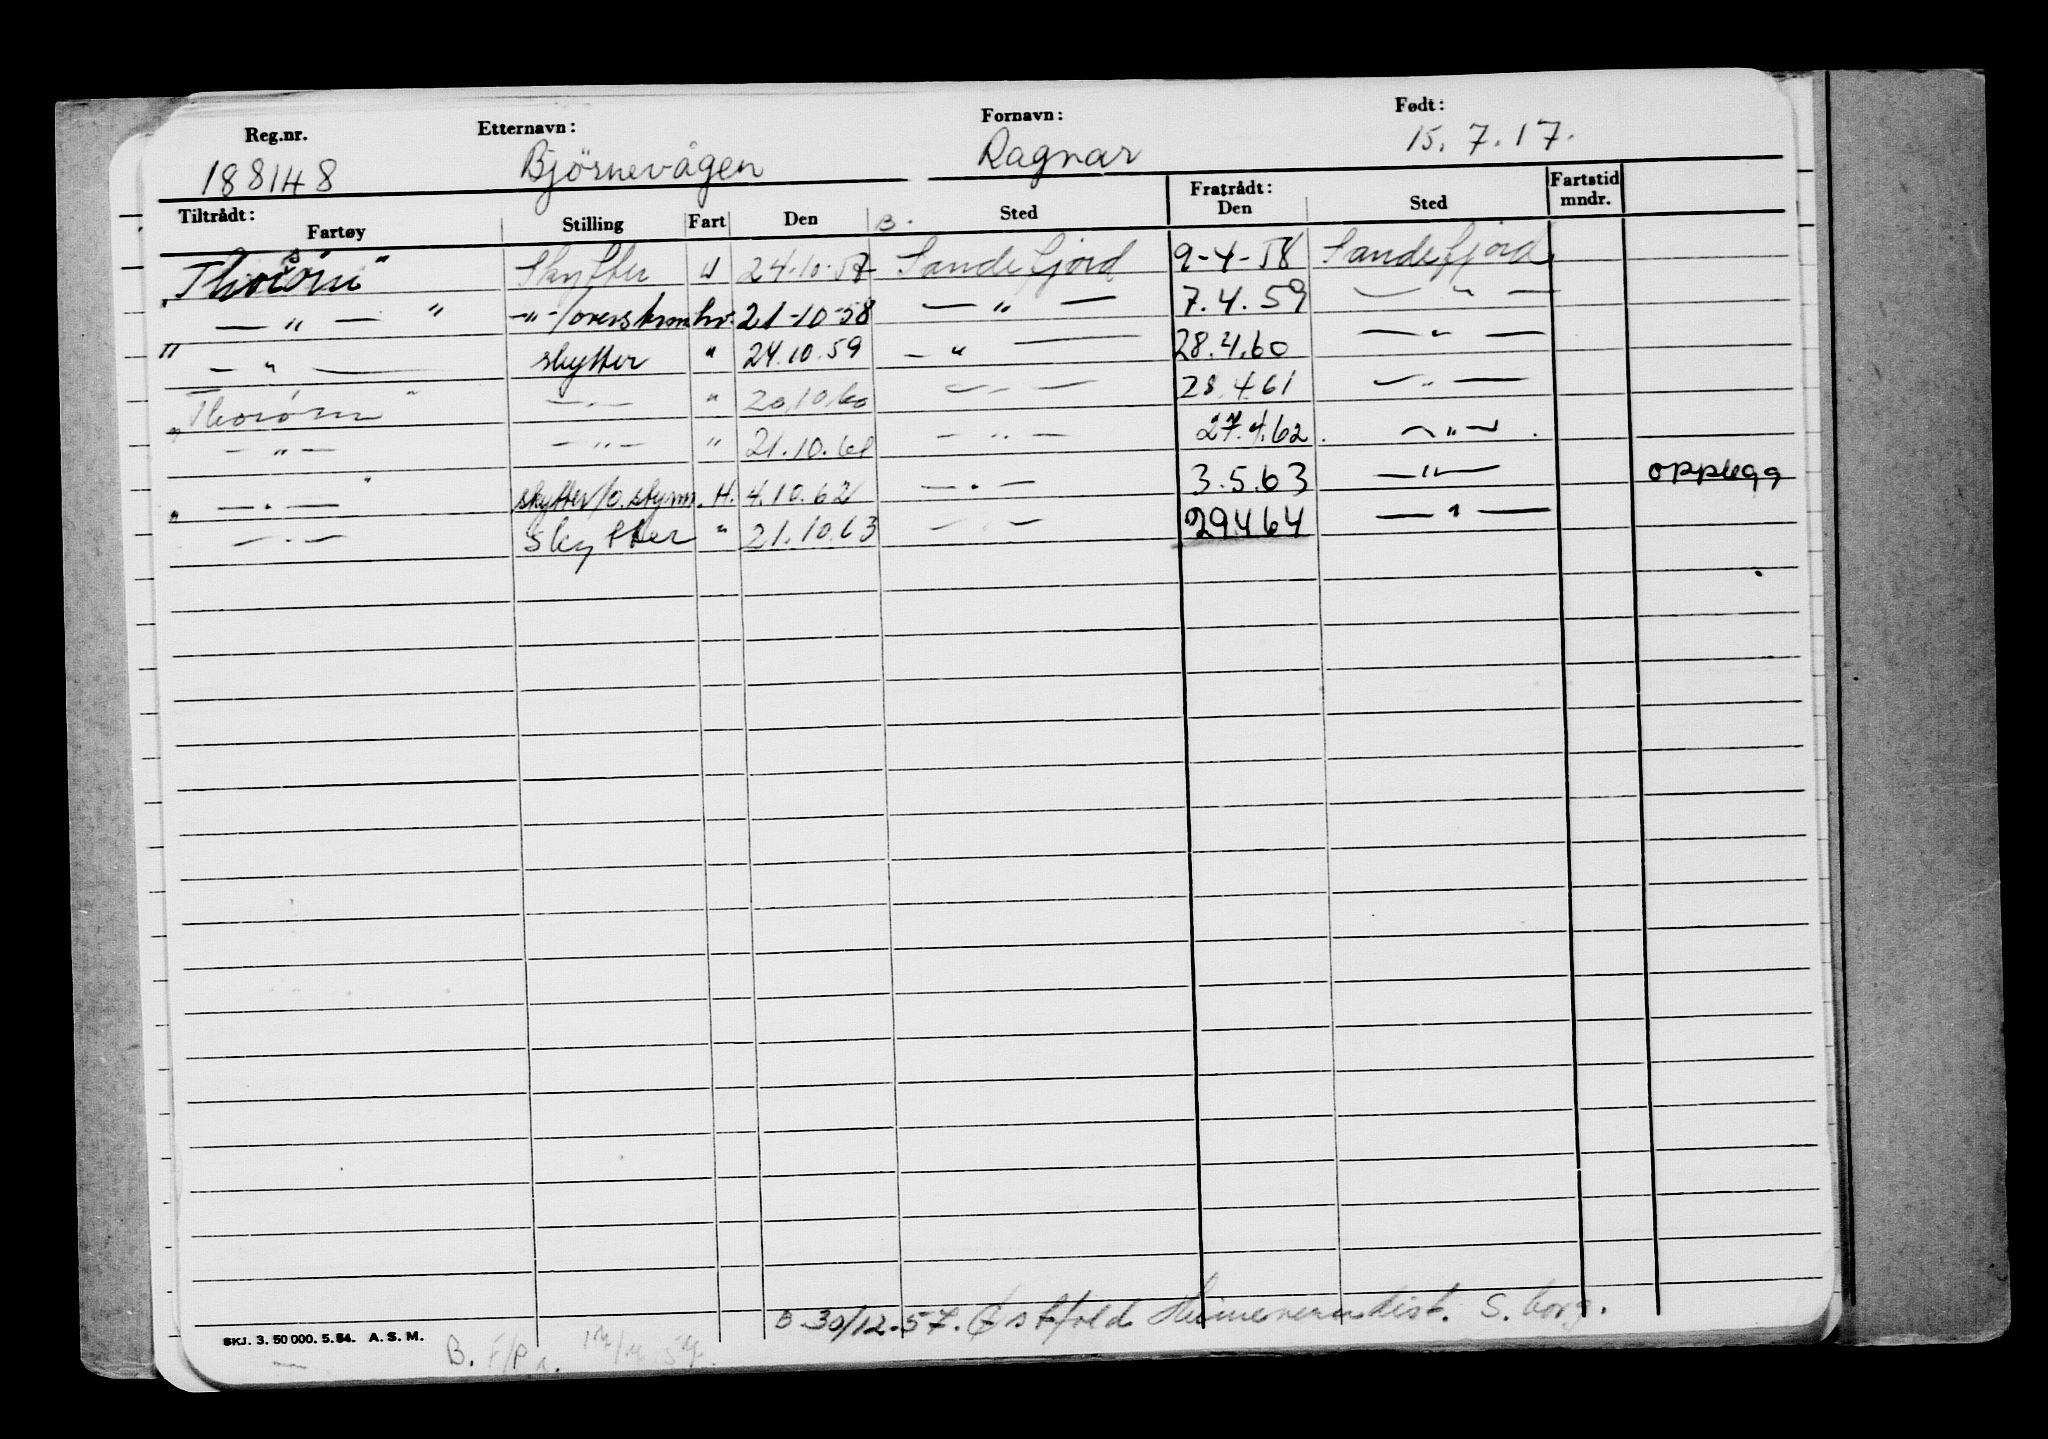 Reg.nr. Etternavn: Fornavn: Født:
188148 Bjørnevågen Ragnar 15.7.17.
Tiltrådt: Fartøy Stilling Fart Den B. Sted Fratrådt: Den Sted Fartstid mndr.
"Thorsørn" Skytter 24-10-57 Sandefjord 9-4-58 Sandefjord
— " — " — " — / overstyrm hv. 21-10-58 — " — 7.4.59 — " —
" — " — skytter " 24.10.59 — " — 28.4.60 — " —
"Thorørn" — " — " 20.10.60 — " — 28.4.61 — " —
" — " — — " — " 21.10.61 — " — 27.4.62. — " — .
— " — " skytter/o.styrm. H. 4.10.62 — " — 3.5.63 — " — opplegg
" — " — Skytter " 21.10.63 — " — 29.4.64 — " —
B 30/12-57. Østfold Heimeverndist. S.borg.
SKJ. 3. 50 000. 5.54. A. S. M. B. F/P